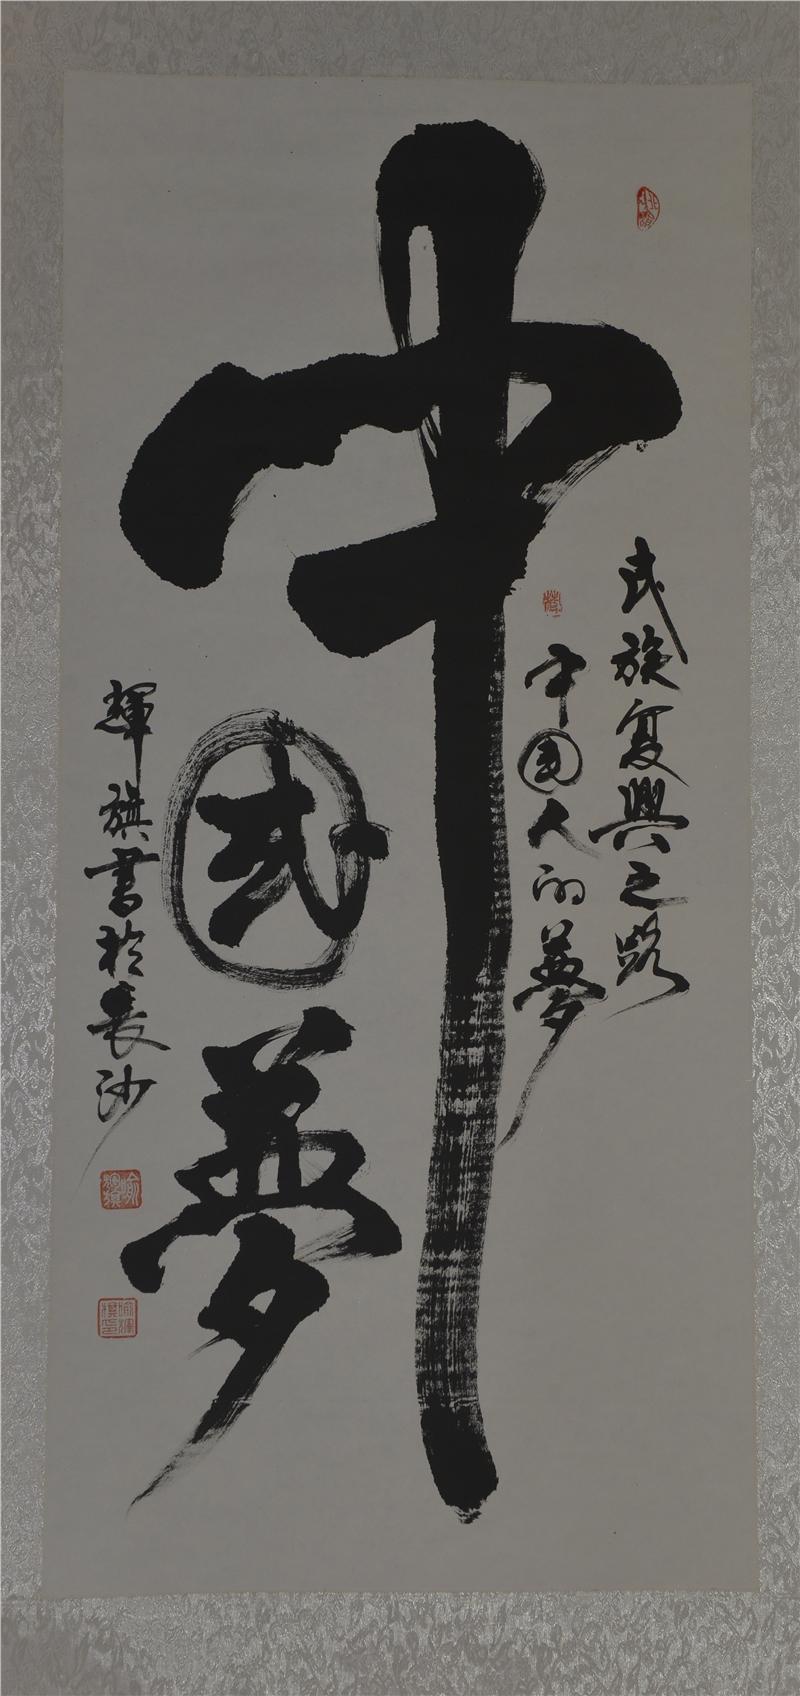 民族复興之路
中国人的夢
中国夢
輝旗書於長沙